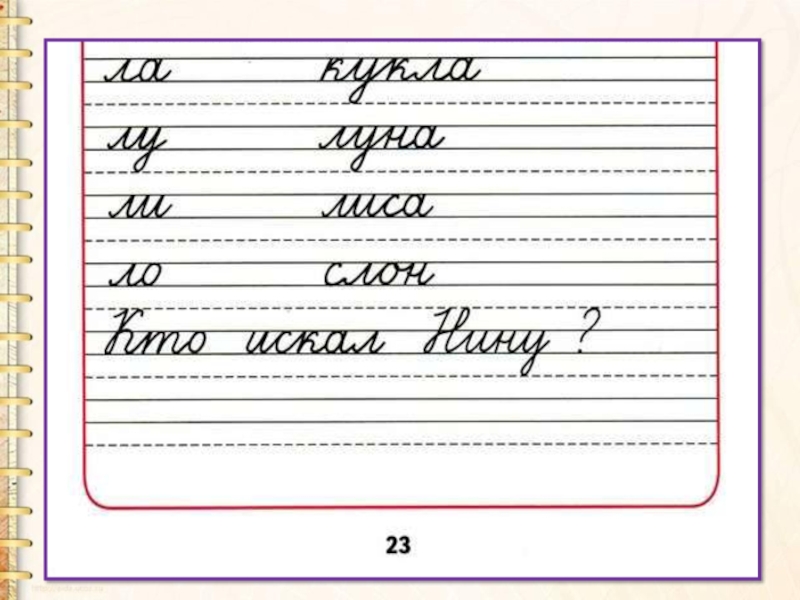 ла кукла
лу луна
ли лиса
ло слон
Кто искал Нину ?
23